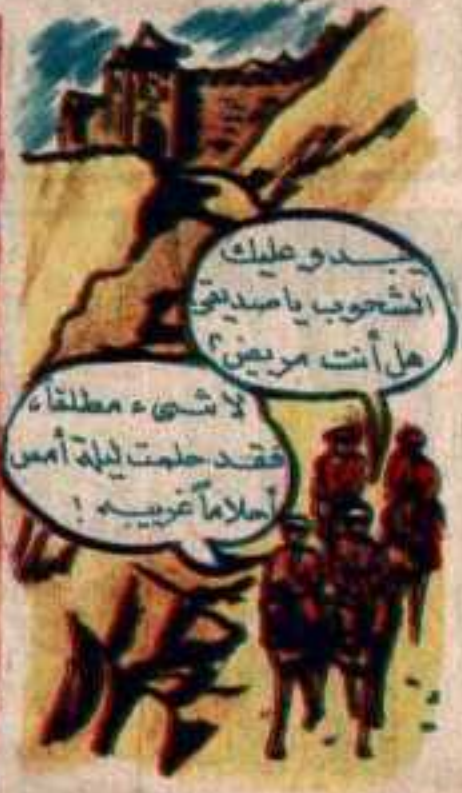 يبدو عليك
الشحوب يا صديقي
هل أنت مريض؟
لا شيء مطلقاً،
فقد حلمت ليلة أمس
أحلاماً غريبه !